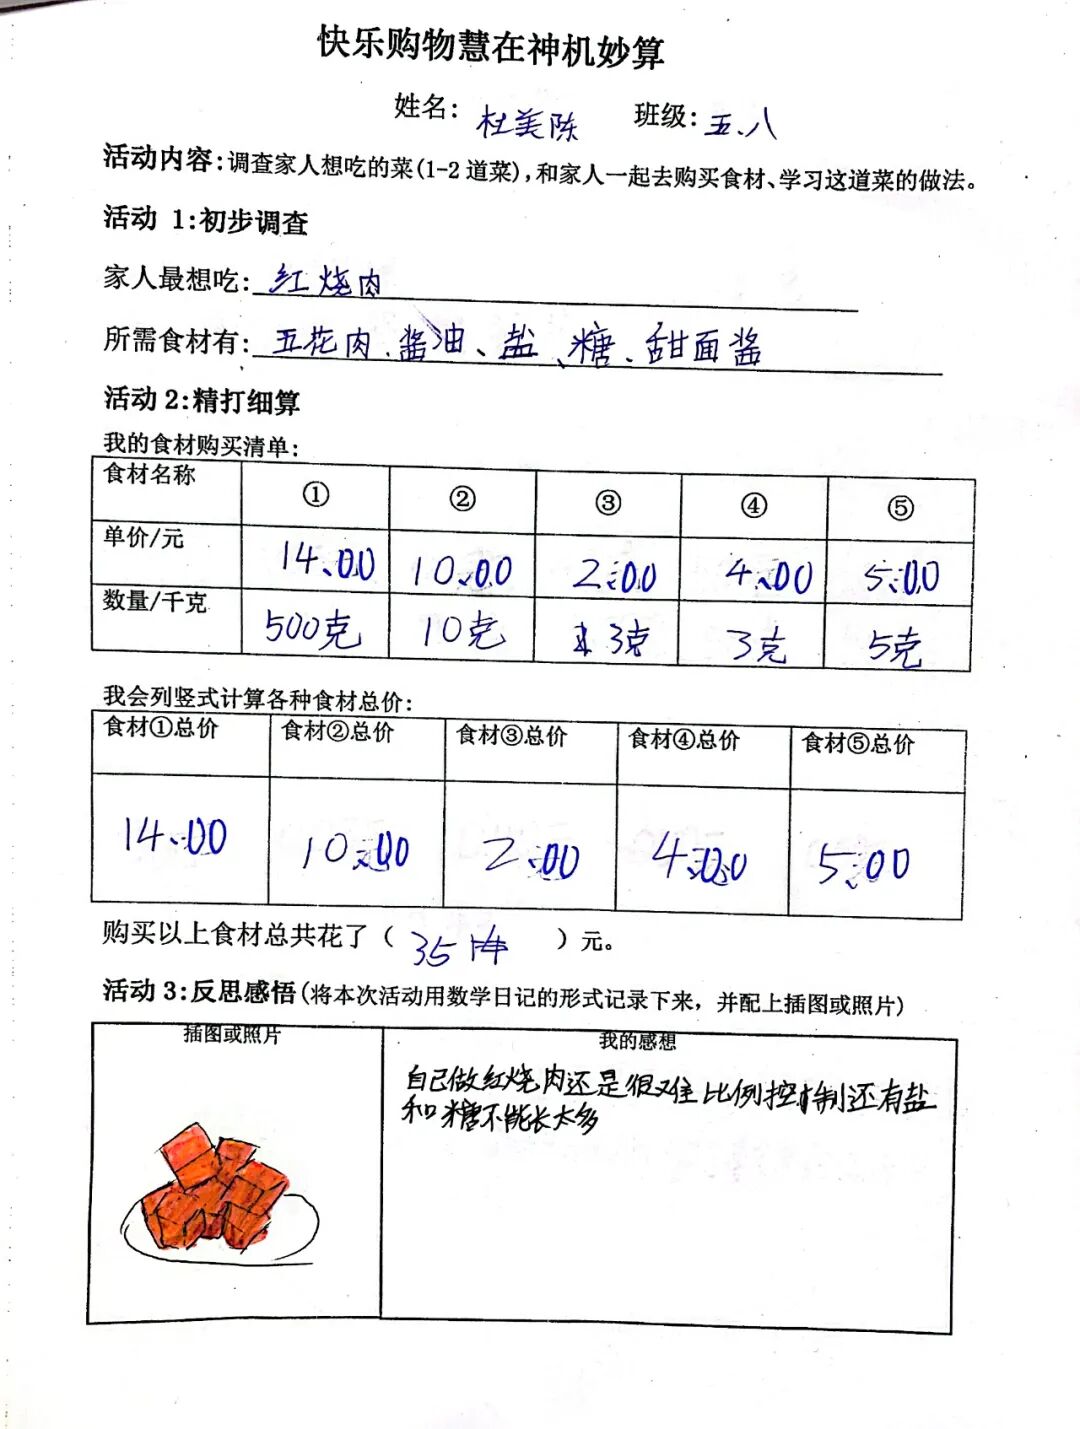 快乐购物慧在神机妙算
姓名: 杜美陈 班级: 五.八
活动内容:调查家人想吃的菜(1-2道菜),和家人一起去购买食材、学习这道菜的做法。
活动 1:初步调查
家人最想吃: 红烧肉
所需食材有: 五花肉、酱油、盐、糖、甜面酱
活动 2:精打细算
我的食材购买清单:
食材名称 ① ② ③ ④ ⑤
单价/元 14.00 10.00 2.00 4.00 5.00
数量/千克 500克 10克 3克 3克 5克
我会列竖式计算各种食材总价:
食材①总价 食材②总价 食材③总价 食材④总价 食材⑤总价
14.00 10.00 2.00 4.00 5.00
购买以上食材总共花了( 35 )元。
活动 3:反思感悟(将本次活动用数学日记的形式记录下来，并配上插图或照片)
插图或照片 我的感想
自己做红烧肉还是很难 比例控制还有盐
和糖不能太多